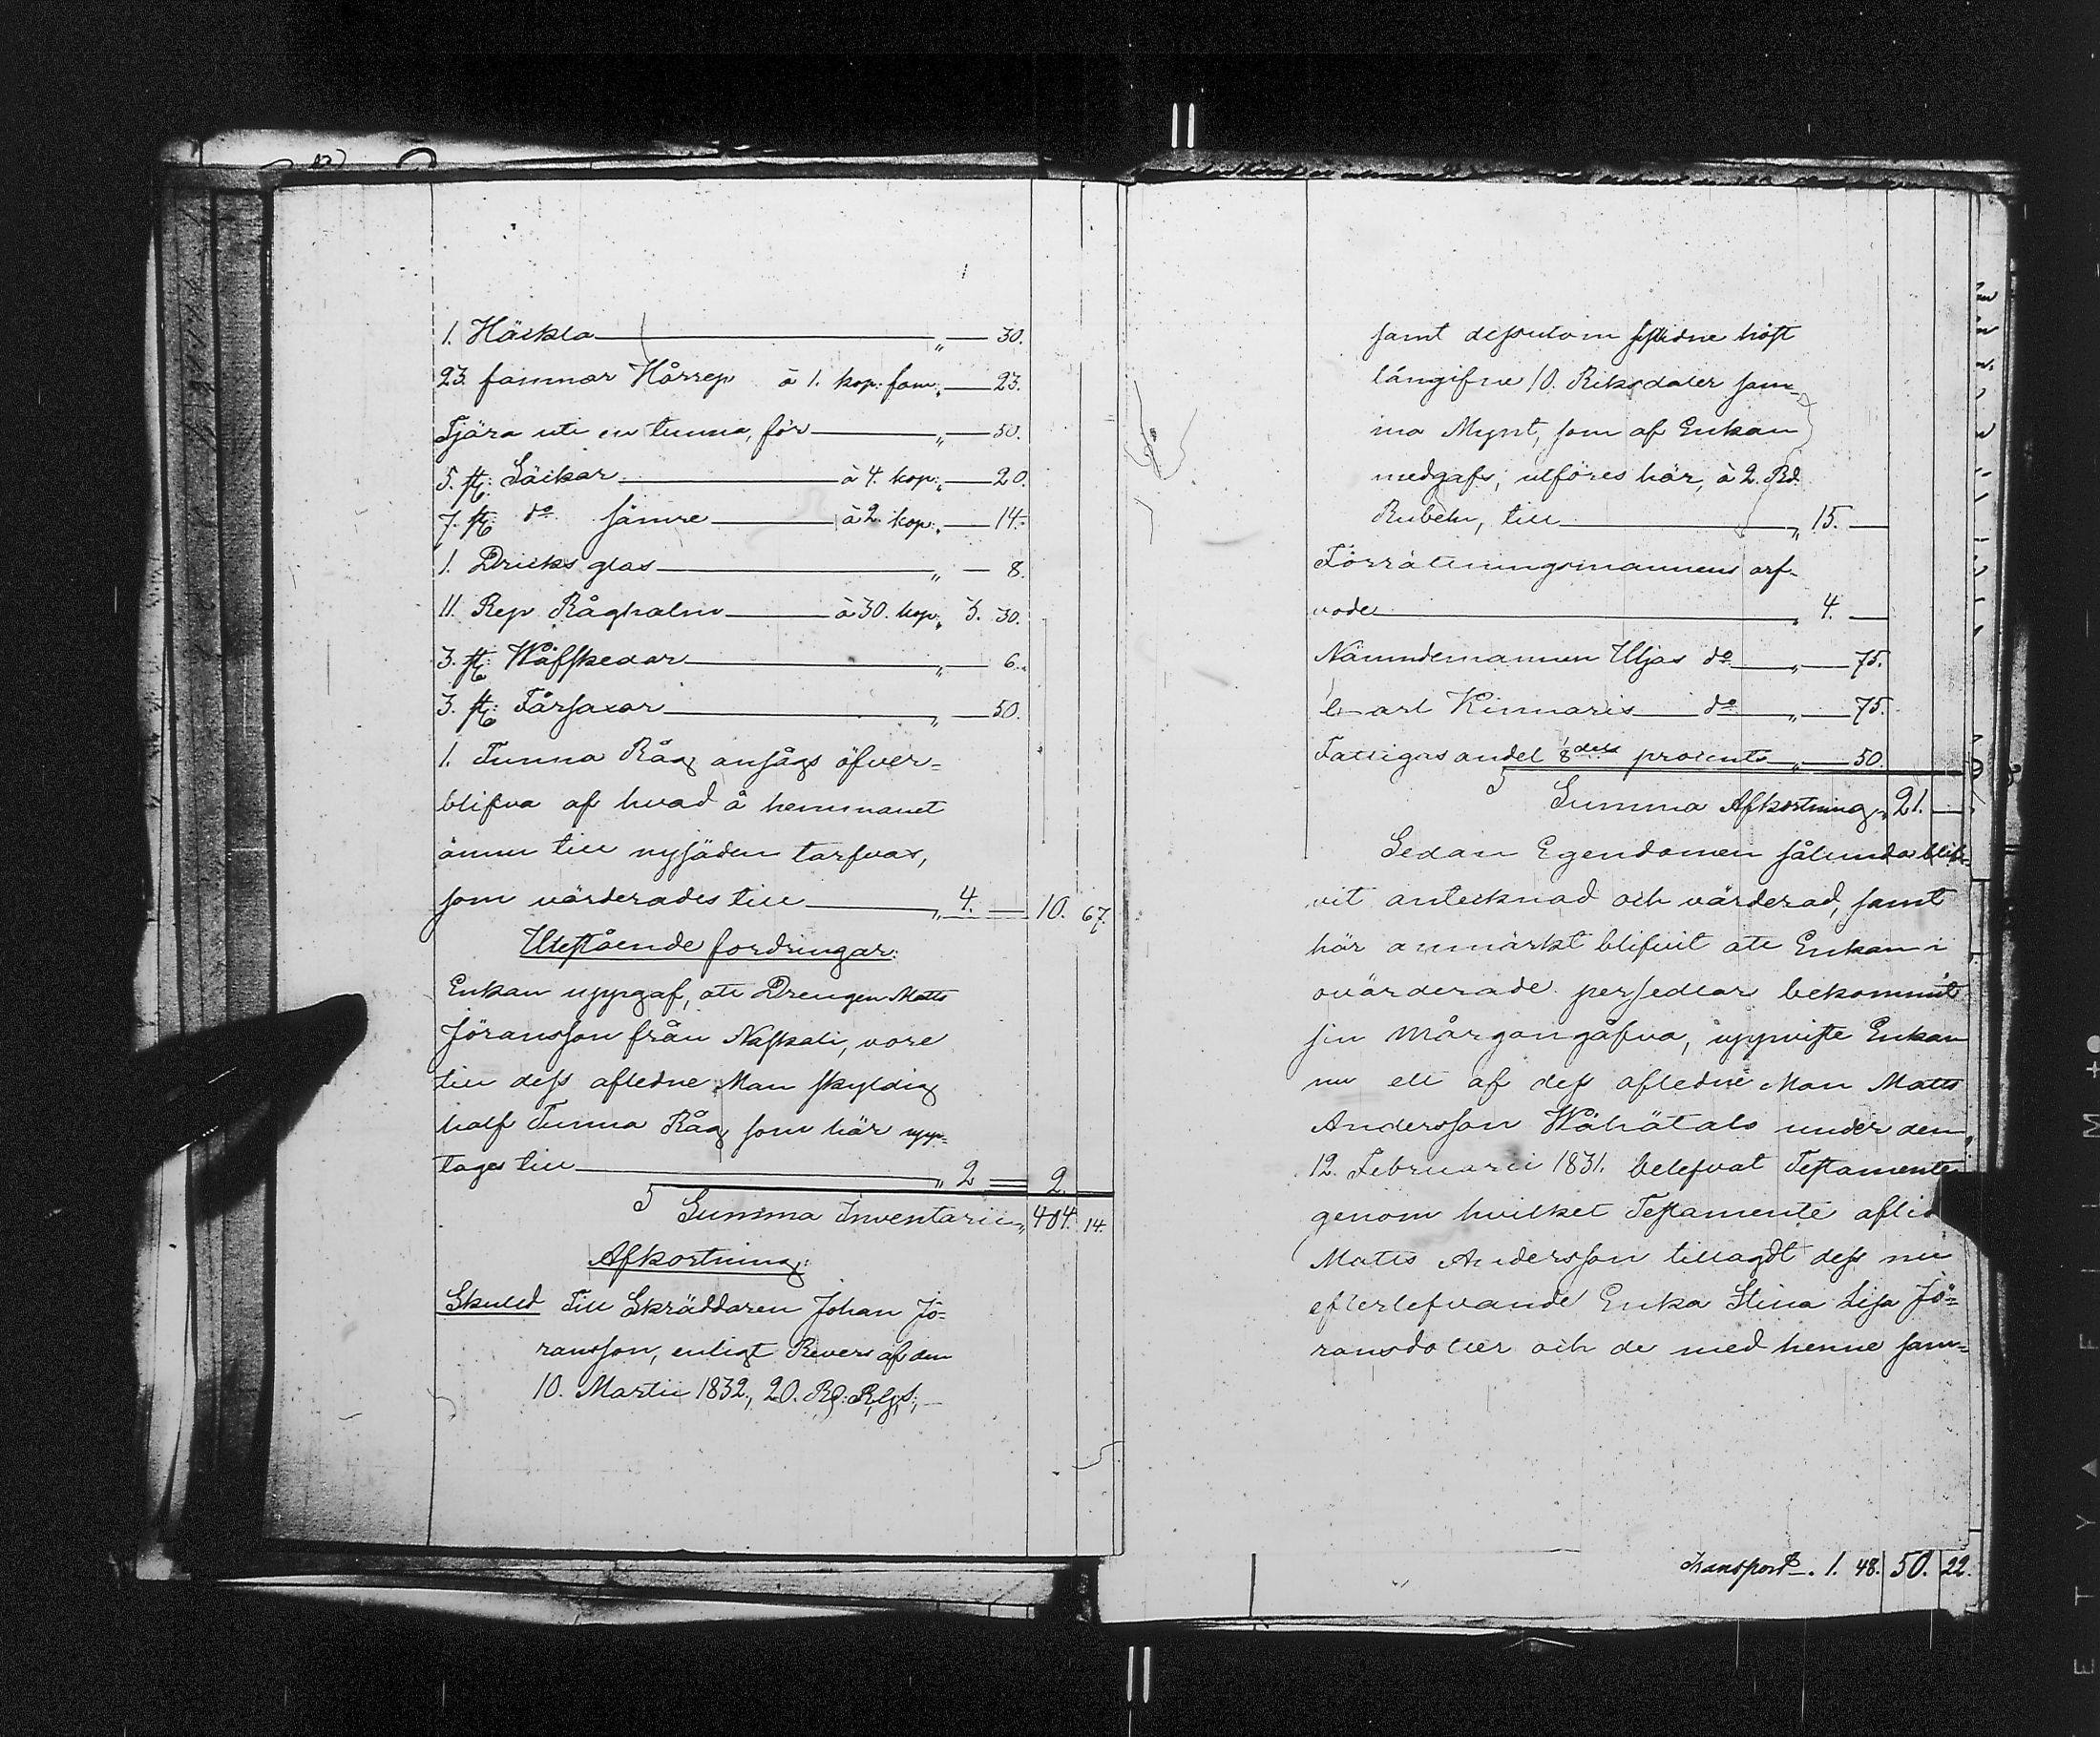 1. Häckla — „ — 30.
23. famnar Hårrep à 1. kop: famn „ — 23.
Tjära uti en tunna, för — „ — 50.
5. st: Säckar — à 4. kop: „ — 20.
7. st: do sämre — à 2. kop: „ — 14.
1. Dricks glas — „ — 8.
11. Rep Råghalm — à 30. kop: „ 3. 30.
3. st: Wäfskedar — „ — 6.
3. st: Fårsaxar — „ — 50.
1. Tunna Råg ansågs öfver=
blifva af hvad å hemmanet
ännu till nysäden tarfvas,
som värderades till — „ 4. — 10. 67.
Utestående fordringar:
Enkan uppgaf, att Drengen Matts
Jöransson från Naskali, vore
till dess afledne Man skyldig
half Tunna Råg som här upp=
tages till — „ 2 — 2.
Summa Inventarii „ 404. 14.
Afkortning:
Skuld Till Skräddaren Johan Jö=
ransson, enligt Revers af den
10. Martii 1832, 20. Rd: Rgs: —
samt dessutom höst
långifne 10. Riksdaler sam=
ma Mynt, som af Enkan
medgafs, utföres här, à 2. Rd.
Rubeln, till — „ 15. —
Förrättningsmannens arf-
vode — „ 4. —
Nämndemannen Uljas do — „ — 75.
Carl Kinnaris — do — „ — 75.
Fattigas andel 1/8 dels procent — „ — 50.
Summa Afkortning „ 21. —
Sedan Egendomen sålunda blif-
vit antecknad och värderad, samt
här anmärkt blifvit att Enkan i
ovärderade persedlar bekommit
sin Mårgongåfva, uppviste Enkan
nu ett af dess afledne Man Matts
Andersson Wähätalo under den
12. Februarii 1831. belefvat Testamente
genom hvilket Testamente aflid
Matts Andersson tillagdt dess nu
efterlefvande Enka Stina Lisa Jö=
ransdotter och de med henne sam=
Transport . 1. 48. 50. 22.